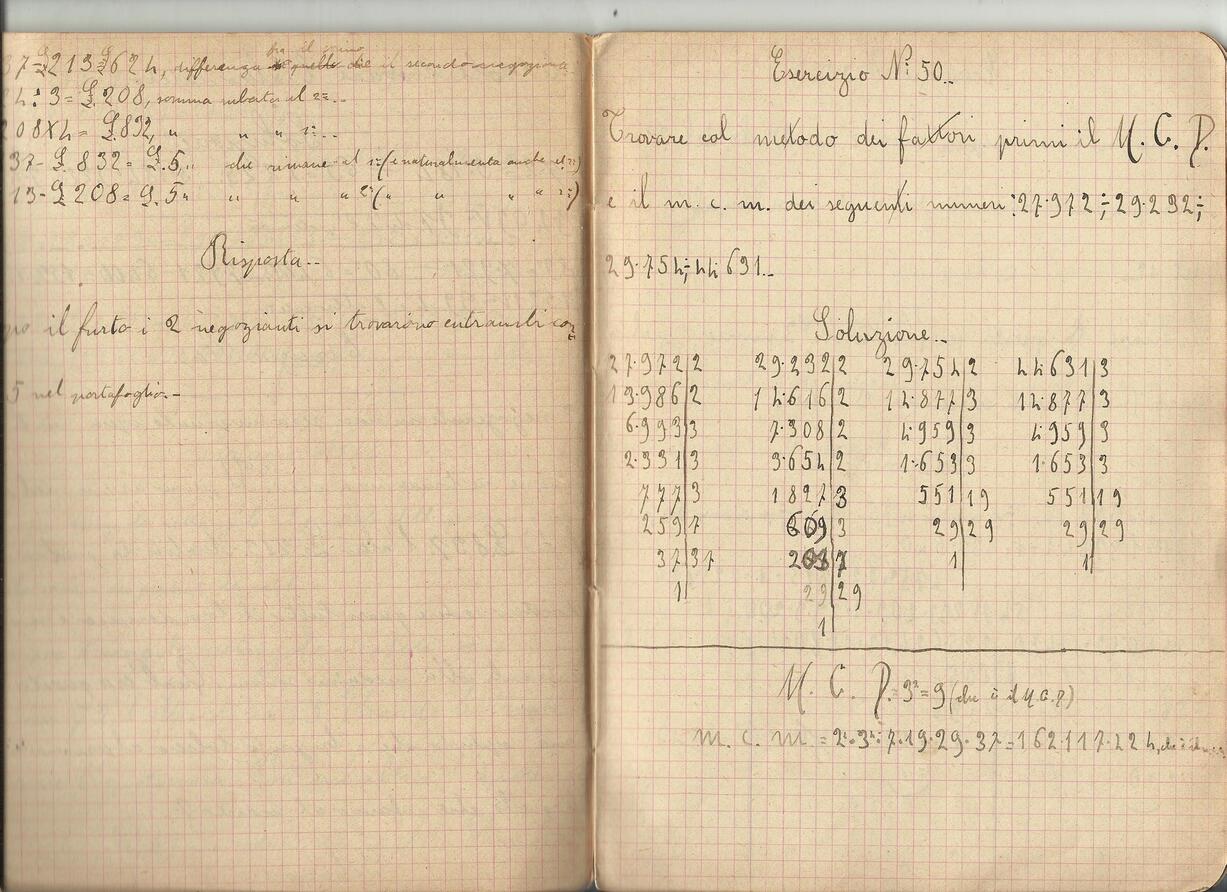 37-£213=£624, differenza fra il primo e il secondo negoziante
24:3=£.208, somma rubata al 2º..
208X4= £.832, " " " 1º...
37-£.832=£.5, " che rimane al 1º (e naturalmente anche al 2º)
13-£208=£.5 " " " " 2º (" " " " 1º)
Risposta..
il furto i 2 negozianti si trovarono entrambi con
5 nel portafoglio.-
Esercizio Nº 50..
Trovare col metodo dei fattori primi il M. C. D.
e il m. c. m. dei seguenti numeri: 27.972; 29.232;
29.754; 44.631..
Soluzione..
27.972|2 29.232|2 29.754|2 44.631|3
13.986|2 14.616|2 14.877|3 14.877|3
6.993|3 7.308|2 4.959|3 4.959|3
2.331|3 3.654|2 1.653|3 1.653|3
777|3 1827|3 551|19 551|19
259|7 609|3 29|29 29|29
37|37 203|7 1| 1|
1| 29|29
1|
M. C. D. = 3² = 9 (che è il M.C.D)
m. c. m = 2⁴·3⁴·7·19·29·37=162.117.224, che è il